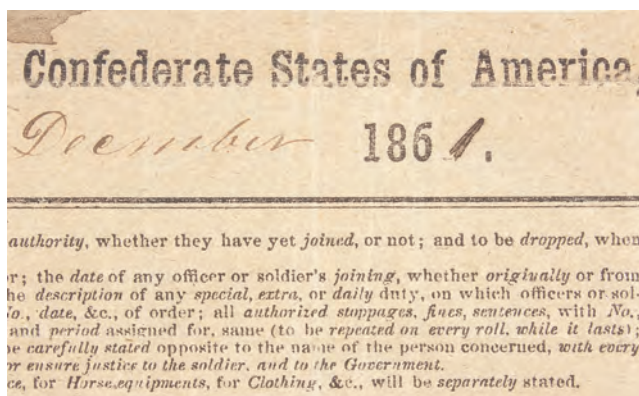 Confederate States of America,
December 1861.
authority, whether they have yet joined, or not; and to be dropped, when
or; the date of any officer or soldier's joining, whether originally or from
he description of any special, extra, or daily duty, on which officers or sol-
No., date, &c., of order; all authorized stoppages, fines, sentences, with No.,
and period assigned for, same (to be repeated on every roll, while it lasts);
be carefully stated opposite to the name of the person concerned, with every
or ensure justice to the soldier, and to the Government.
ce, for Horse,equipments, for Clothing, &c., will be separately stated.